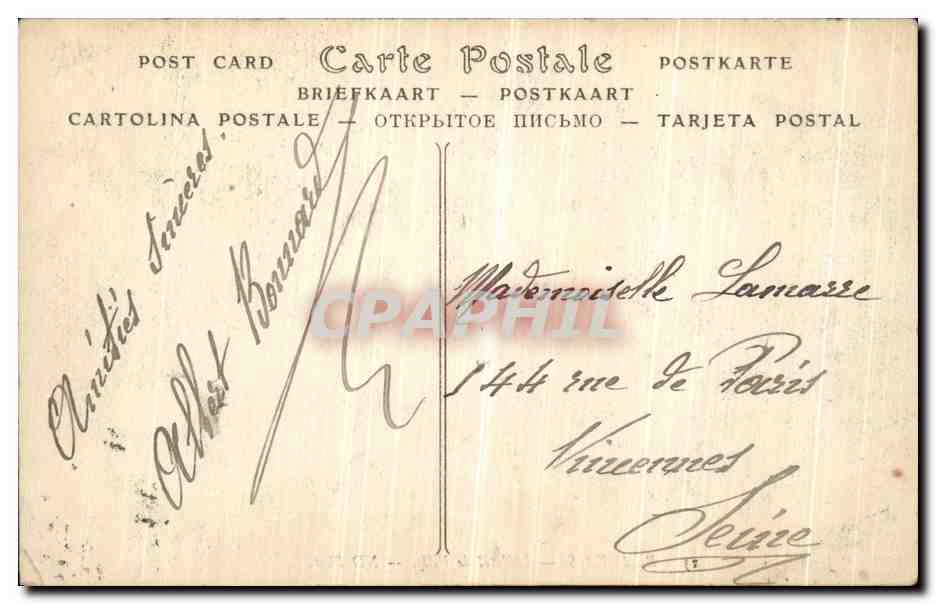 POST CARD Carte Postale POSTKARTE
BRIEFKAART — POSTKAART
CARTOLINA POSTALE — ОТКРЫТОЕ ПИСЬМО — TARJETA POSTAL
Amitiés sincères
Albert Bonnard
Mademoiselle Lamarre
144 rue de Paris
Vincennes
Seine
CPAPHIL